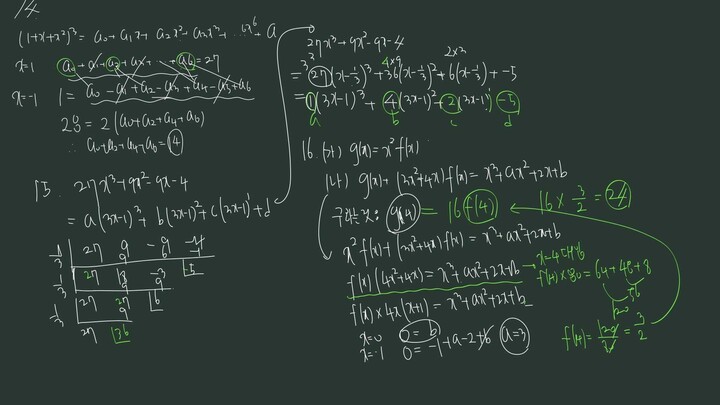 14.
(1+x+x²)³ = a₀+a₁x+a₂x²+a₃x³+
x=1 a₀+a₁+a₂+ + a₆=27
x=-1 1= a₀-a₁+a₂-a₃+a₄-a₅+a₆
28=2(a₀+a₂+a₄+a₆)
∴ a₀+a₂+a₄+a₆=14
15. 27x³+9x²-9x-4
= a(3x-1)³+b(3x-1)²+c(3x-1)¹+d
1/3 27 9 -9 -4
9 6 -1
1/3 27 18 -3 -5
9 9
1/3 27 27 6
9
27 36
27x³+9x²-9x-4
3³ 4×9 2×3
= 27(x-1/3)³+36(x-1/3)²+6(x-1/3)+-5
= 1(3x-1)³+4(3x-1)²+2(3x-1)¹-5
a b c d
16. (가) g(x)=x²f(x)
(나) g(x)+(3x²+4x)f(x)=x³+ax²+2x+b
구하는것: g(4) = 16f(4)
16×3/2=24
x²f(x)+(3x²+4x)f(x)=x³+ax²+2x+b
f(x)(4x²+4x)=x³+ax²+2x+b
x=4 대입
f(4)×80=64+48+8
56
120
f(x)×4x(x+1)=x³+ax²+2x+b
x=0 0=b
x=-1 0=-1+a-2+b a=3
f(4)= =3/2